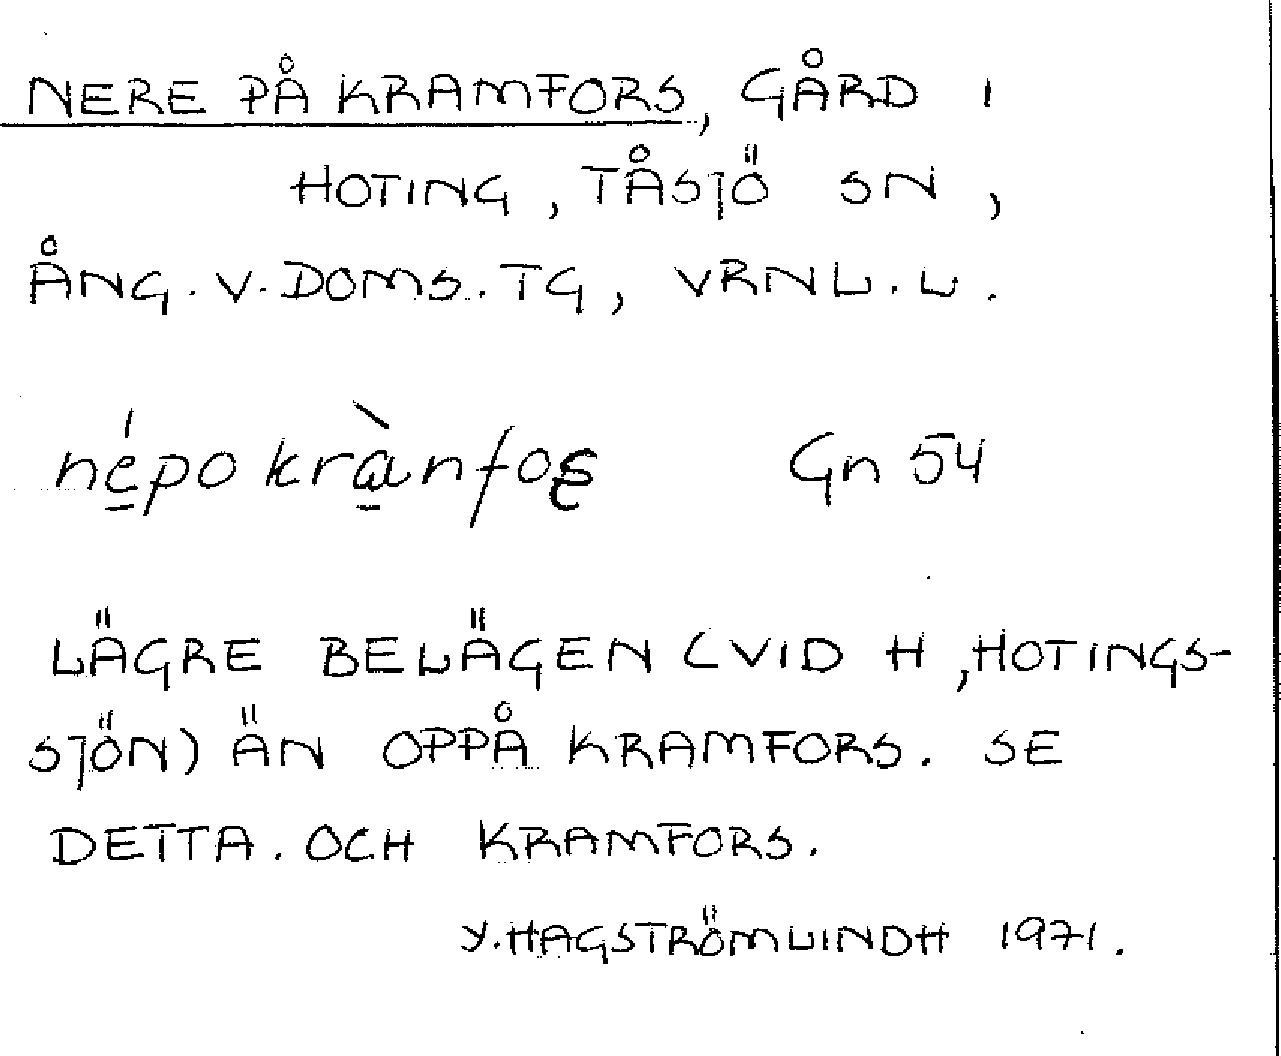 NERE PÅ KRAMFORS, GÅRD I
HOTING, TÅSJÖ SN,
ÅNG. V. DOMS. TG, VRNL. L.
népo krànfoş Gn 54
LÄGRE BELÄGEN (VID H, HOTINGS-
SJÖN) ÄN OPPÅ KRAMFORS. SE
DETTA. OCH KRAMFORS.
Y. HAGSTRÖMLINDH 1971.